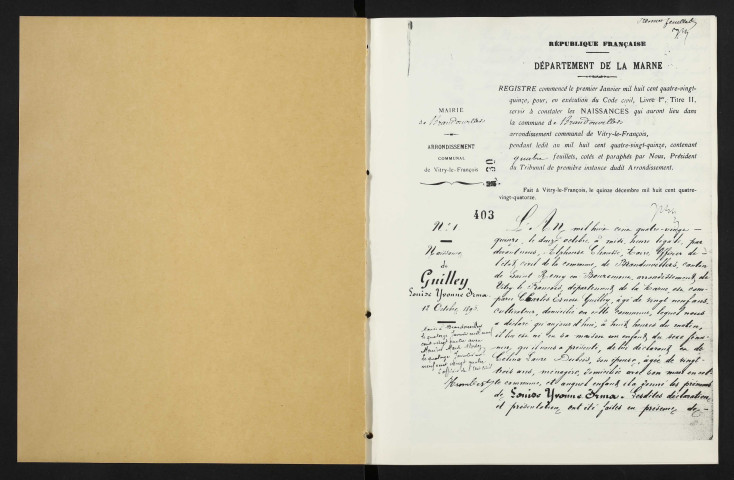 Premier feuillet
RÉPUBLIQUE FRANÇAISE
DÉPARTEMENT DE LA MARNE
REGISTRE commencé le premier Janvier mil huit cent quatre-vingt-
quinze, pour, en exécution du Code civil, Livre Ier, Titre II,
servir à constater les NAISSANCES qui auront lieu dans
la commune de Brandonvillers
arrondissement communal de Vitry-le-François,
pendant ledit an mil huit cent quatre-vingt-quinze, contenant
quatre feuillets, cotés et paraphés par Nous, Président
du Tribunal de première instance dudit Arrondissement.
Fait à Vitry-le-François, le quinze décembre mil huit cent quatre-
vingt-quatorze.
MAIRIE
de Brandonvillers
ARRONDISSEMENT
COMMUNAL
de Vitry-le-François
E 30
403
N° 1
Naissance
de
Guilley
Louise Yvonne Irma
12 Octobre 1895
L'An mil huit cent quatre-vingt-
quinze, le douze octobre, à midi, heure légale, par
devant nous, Alphonse Maire, Officier de
l'état civil de la commune de Brandonvillers, canton
de Saint Remy en Bouzemont, arrondissement de
Vitry le François, département de la Marne, est com-
paru Charles Guilley, âgé de vingt neuf ans,
cultivateur, domicilié en cette commune, lequel nous
a déclaré qu'aujourd'hui, à huit heures du matin,
il lui est né en sa maison un enfant du sexe fémi-
nin, qu'il nous a présenté, de lui déclarant et de
Celina Laure Dubois, son épouse, âgée de vingt-
trois ans, ménagère, domiciliée avec son mari en cet-
te commune, et auquel enfant il a donné les prénoms
de Louise Yvonne Irma. Lesdites déclaration
et présentation ont été faites en présence de